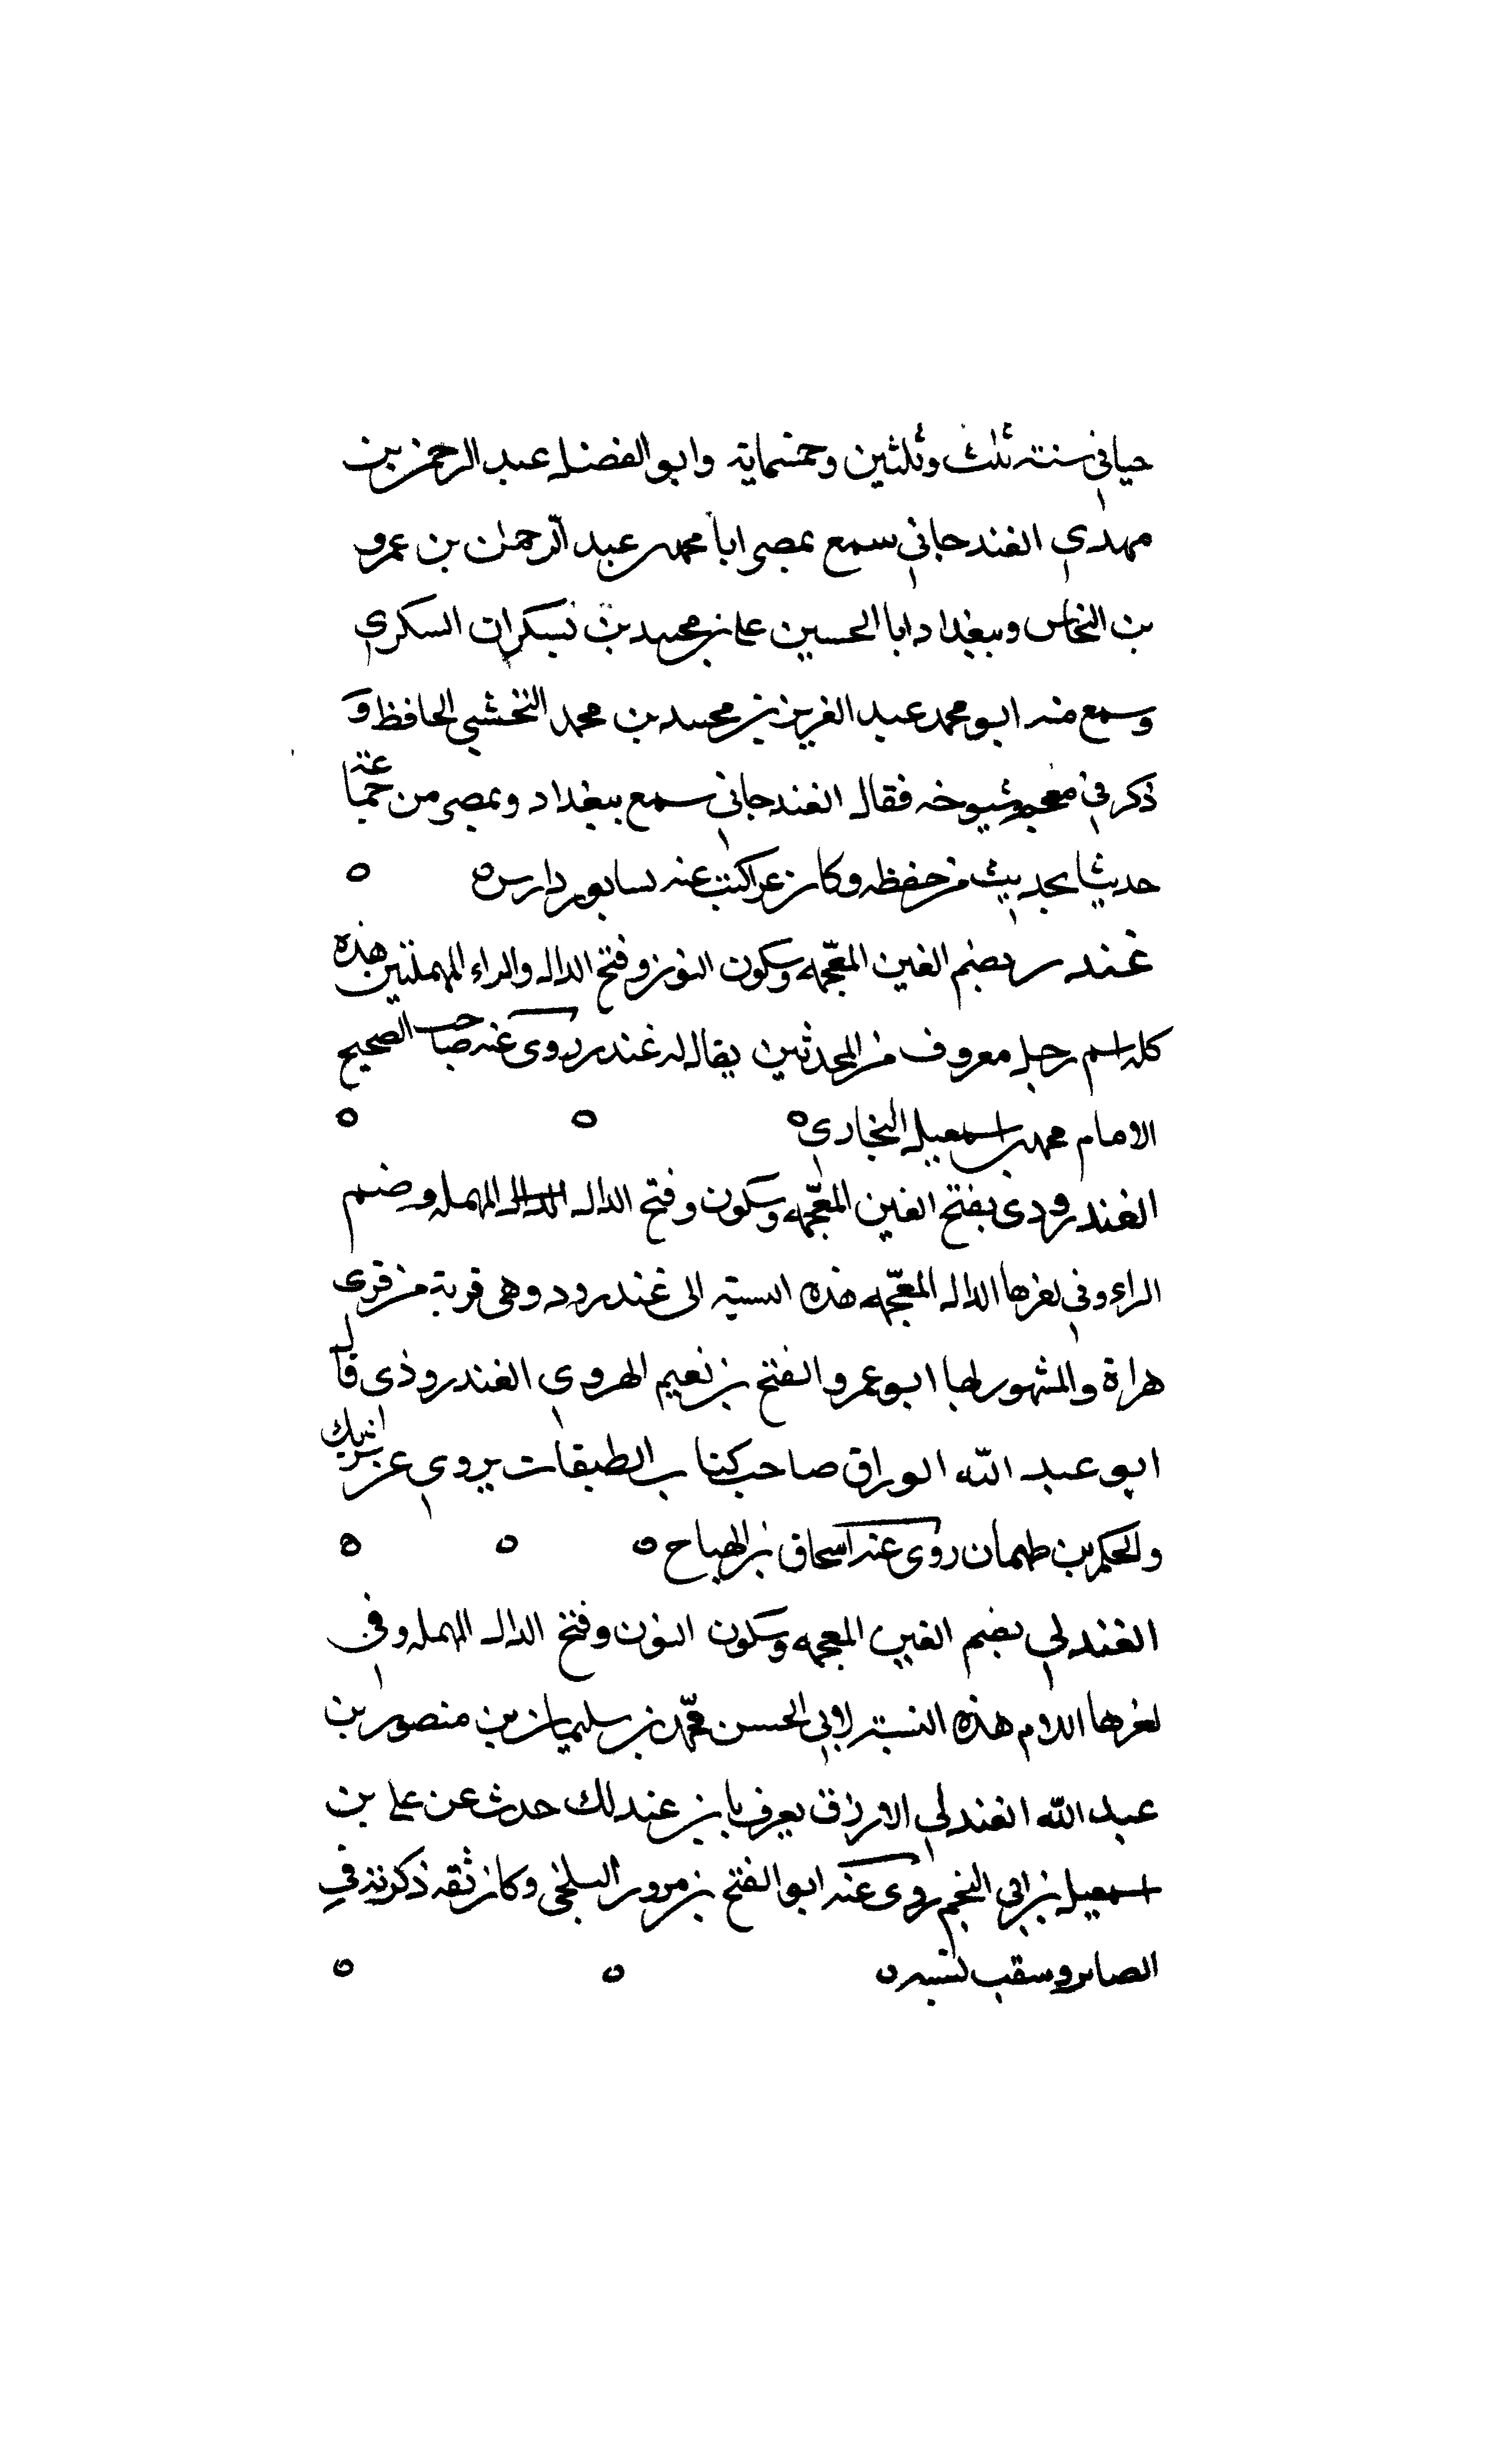 حياتي سنة ثلث وثلثين وخمسماية وابو الفضل عبد الرحمن بن
مهدى الغندجاني سمع بمصر ابا محمد عبد الرحمن بن عمرو
بن النحاس وببغداد ابا الحسين على بن محمد بن بشكران السكرى
وسمع منه ابو محمد عبد العزيز بن محمد بن محمد النخشبي الحافظ و
ذكر في معجم شيوخه فقال الغندجاني سمع ببغداد وبمصر من جماعة
حديثا بحديث من حفظه وكان عنه
غندر بضم الغين المعجمه وسكون النون وفتح الدال والراء المهملتين هذه
كله اسم رجل معروف من المحدثين يقال له غندر روى عنه صاحب الصحيح
الامام محمد بن اسمعيل البخارى ه
الغندروذى بفتح الغين المعجمه وسكون وفتح الدال المهمله وضم
الراء وفي اخرها الدال المعجمه هذه النسبة الى غندرود وهى قرية من قرى
هراة والمشهور بها ابو عمرو الفتح بن نعيم الهروى الغندروذى قال
ابو عبد الله الوراق صاحب كتاب الطبقات يروى عن شريك
والحكم بن طهمان روى عنه اسحاق بن الهياج ه
الغندلي بضم الغين المعجمه وسكون النون وفتح الدال المهمله وفي
اخرها اللام هذه النسبة لابي الحسن محمد بن سليمان بن منصور بن
عبد الله الغندلي الازرق يعرف بابن غندلك حدث عن على بن
اسمعيل بن ابي النجم روى عنه ابو الفتح بن مرور البلخى وكان ثقه ذكرته في